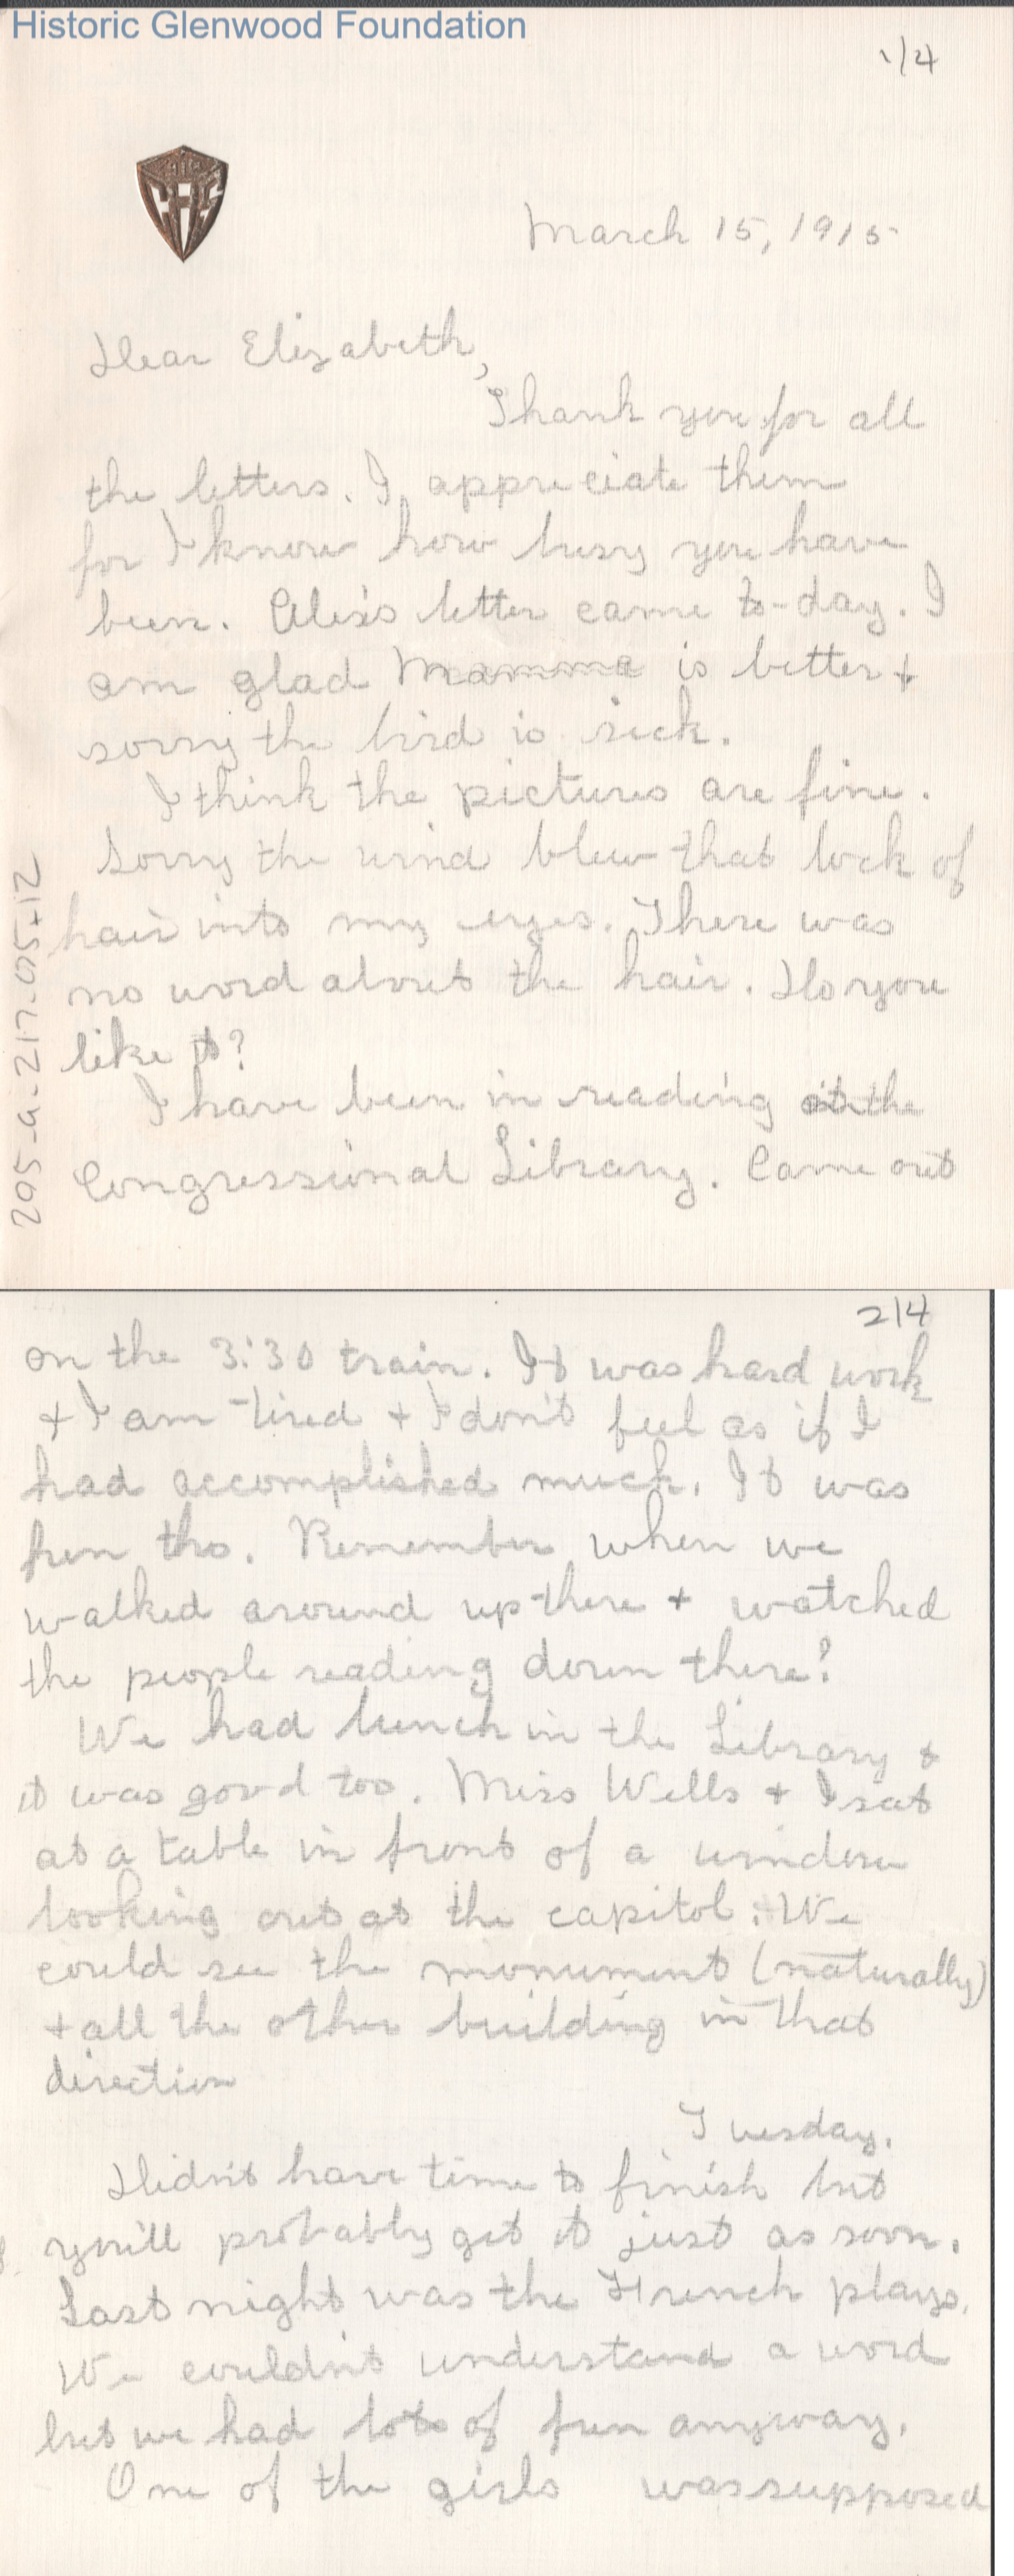 Historic Glenwood Foundation
1/4
March 15, 1915
Dear Elizabeth,
Thank you for all
the letters. I appreciate them
for I know how busy you have
been. Alex's letter came to-day. I
am glad Mamma is better +
sorry the bird is sick.
I think the pictures are fine.
Sorry the wind blew that lock of
hair into my eyes. There was
no word about the hair. Do you
like it?
I have been in reading at the
Congressional Library. Came out
295-a-217-05+12
2/4
on the 3:30 train. It was hard work
+ I am tired + I don't feel as if I
had accomplished much. It was
fun tho. Remember when we
walked around up there + watched
the people reading down there?
We had lunch in the Library +
it was good too. Miss Wells + I sat
at a table in front of a window
looking out at the capitol. We
could see the monument (naturally)
+ all the other building in that
direction
Tuesday.
Didn't have time to finish but
you'll probably get it just as soon.
Last night was the French plays.
We couldn't understand a word
but we had lots of fun anyway.
One of the girls was supposed